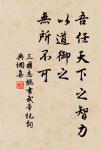 吾任天下之智力
以道御之
無所不可
三國志魏書武帝紀句